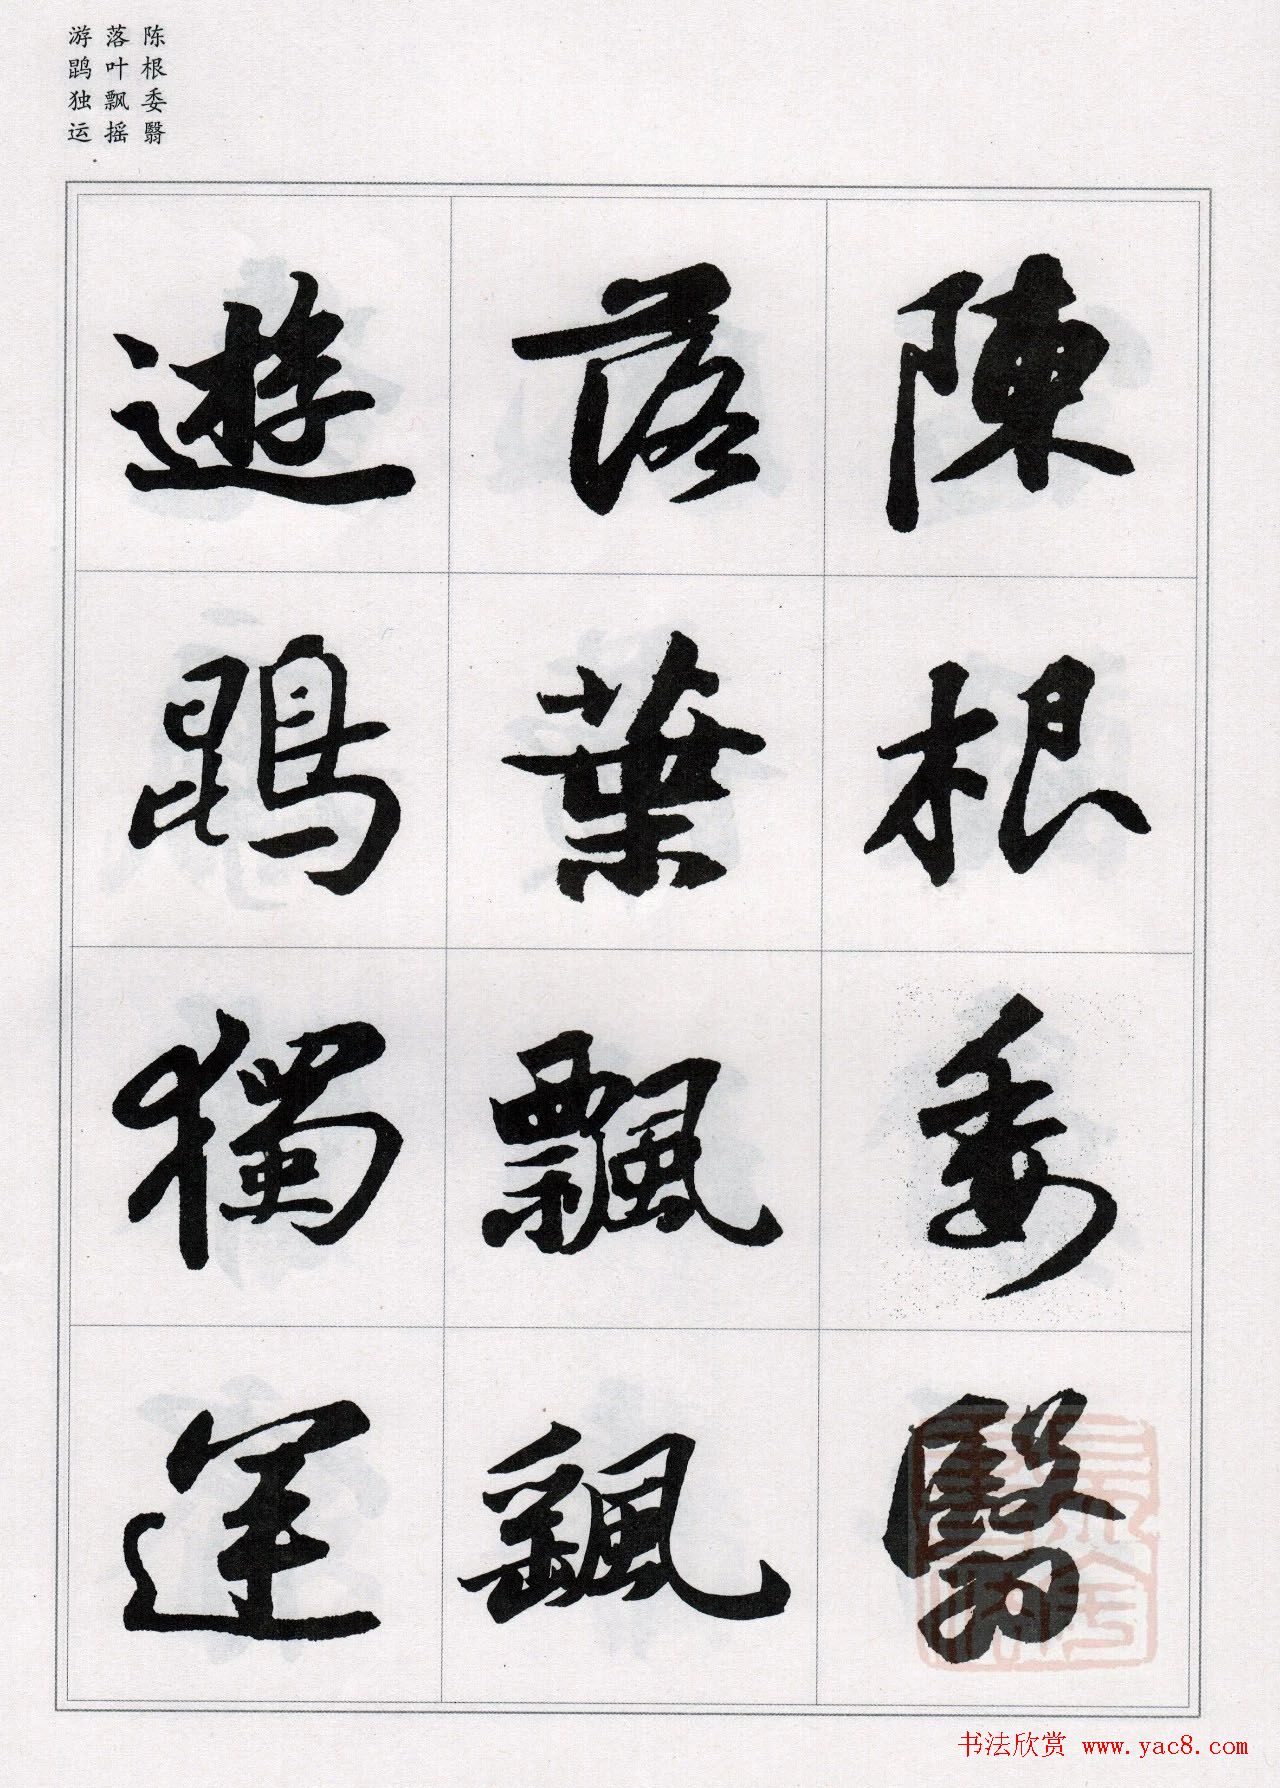 陈根委翳
落叶飘摇
游鹍独运
陳根委翳
落葉飄颻
遊鵾獨運
书法欣赏 www.yac8.com